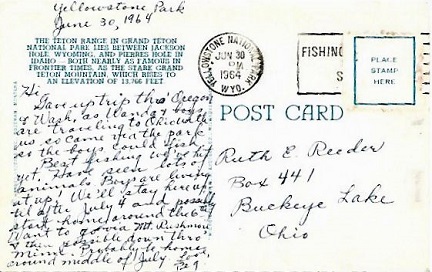 Yellowstone Park
June 30, 1964
THE TETON RANGE IN GRAND TETON
NATIONAL PARK LIES BETWEEN JACKSON
HOLE WYOMING, AND PIERRES HOLE IN
IDAHO — BOTH NEARLY AS FAMOUS IN
FRONTIER TIMES, AS THE STARK GRAND
TETON MOUNTAIN, WHICH RISES TO
AN ELEVATION OF 13,766 FEET
Hi
Gave up trip thru Oregon
& Wash, as
are traveling to with
us so came via the park
so the boys could fish
Best fishing we've hit
yet. Have seen lots of
animals Boys are living
it up. We'll stay here up
til after July 4 and possibly
start home around the 6th
Want to go via Mt. Rushmore
& then possible down thro'
Minn. Probably be home
around middle of July. Love,
YELLOWSTONE NATIONAL PARK
WYO.
JUN 30
PM
1964
FISHING
S
PLACE
STAMP
HERE
POST CARD
Ruth E. Reeder
Box 441
Buckeye Lake
Ohio